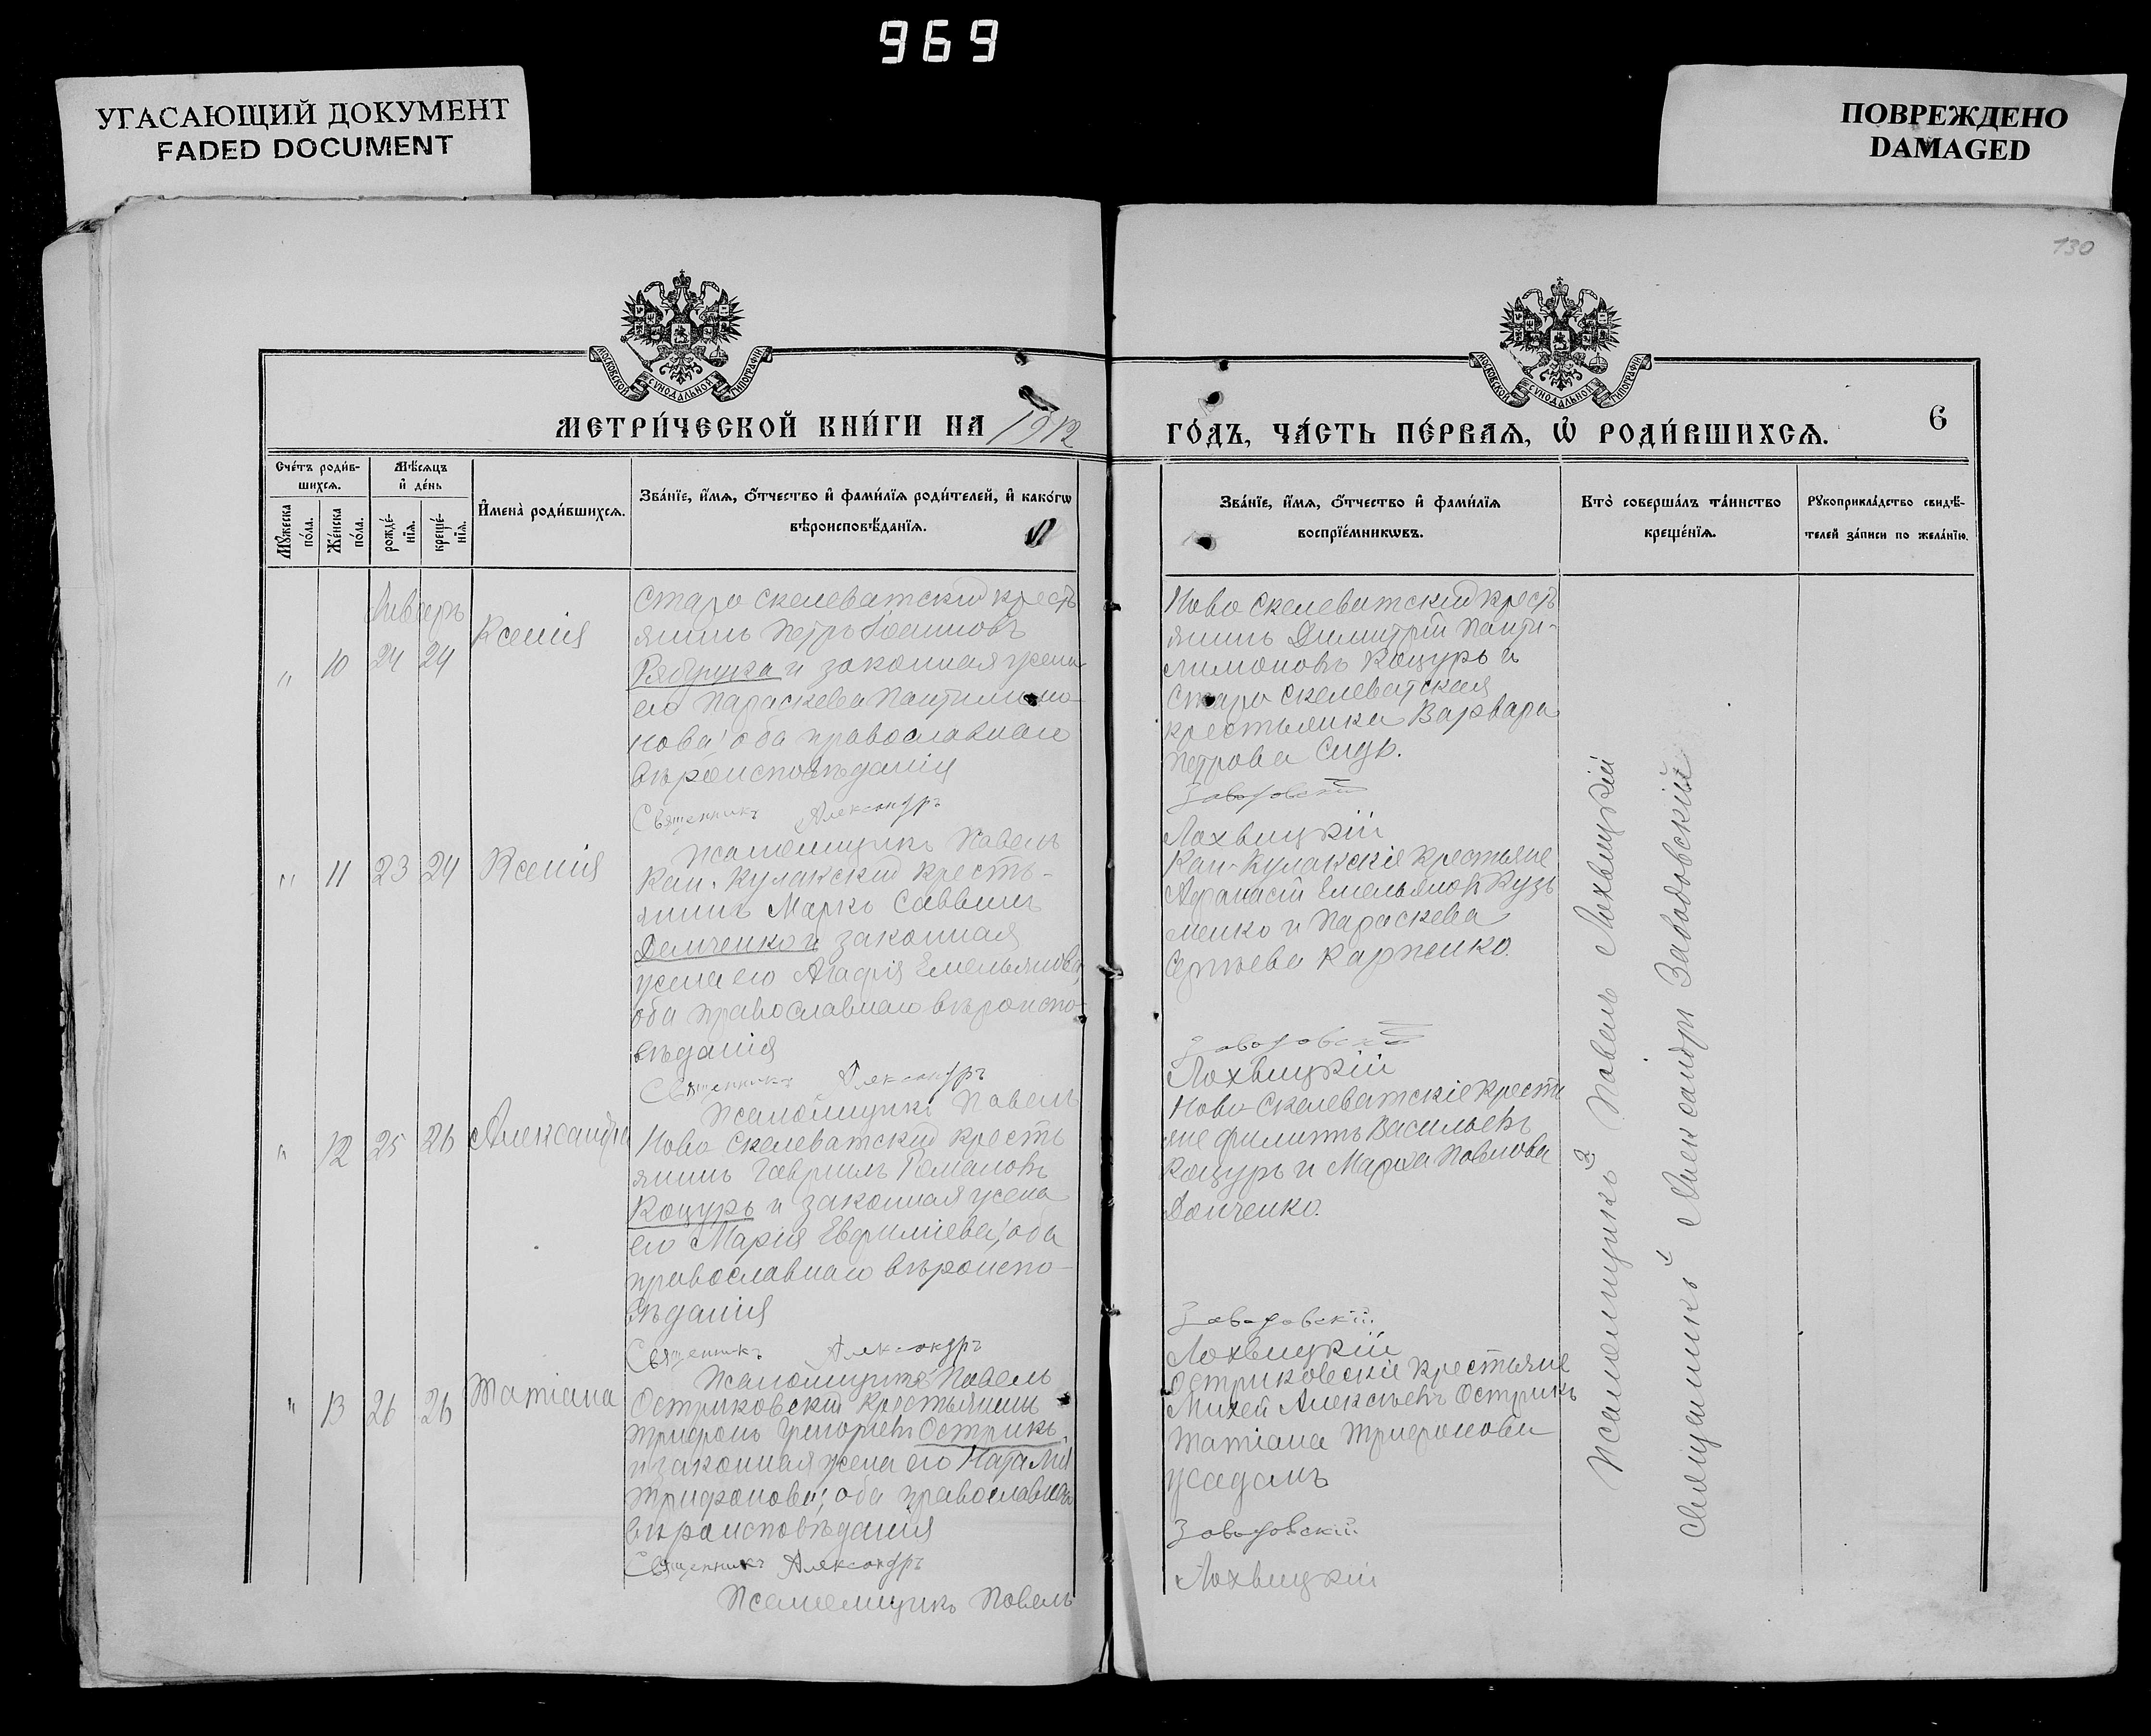 969
УГАСАЮЩИЙ ДОКУМЕНТ
FADED DOCUMENT
ПОВРЕЖДЕНО
DAMAGED
130
МОСКОВСКОЙ СѴНОДАЛЬНОЙ ТИПОГРАФІИ
МОСКОВСКОЙ СѴНОДАЛЬНОЙ ТИПОГРАФІИ
МЕТРИ́ЧЕСКОЙ КНИ́ГИ НА 1912
ГО́ДЪ, ЧА́СТЬ ПЕ́РВАЯ, Ѡ РОДИ́ВШИХСЯ.
6
Сче́тъ роди́в-
шихся.
Мѣ́сяцъ
и де́нь
Му́жеска
по́ла.
Же́нска
по́ла.
рожде́-
нїя.
креще́-
нїя.
Имена̀ роди́вшихся.
Зва́нїе, и́мя, о́тчество и фами́лїя роди́телей, и како́гѡ
вѣроисповѣ́данїя.
Зва́нїе, и́мя, о́тчество и фами́лїя
воспрїе́мникѡвъ.
Кто̀ соверша́лъ та́инство
креще́нїя.
Рукоприкла́дство свидѣ́-
телей за́писи по жела́нїю.
Январь
" 10 24 24 Ксенія
Старо Скелеватскій кресть
янинъ Петръ Іоанновъ
Рябушка и законная жена
его Параскева Пантилимо-
нова; оба православнаго
вѣроисповѣданія
Священникъ Александръ
Псаломщикъ Павелъ
Ново Скелеватскій кресть
янинъ Димитрій Панти-
лимоновъ Коцуръ и
Старо Скелеватская
крестьянка Варвара
Петрова Сидь.
Заводовскій
Лохвицкій
" 11 23 24 Ксенія
Кан. Кулакскій кресть-
янинъ Марко Саввинъ
Демченко и законная
жена его Агафія Емельянова,
оба православнаго вѣроиспо-
вѣданія
Священникъ Александръ
Псаломщикъ Павелъ
Кан-Кулакскіе крестьяне
Афанасій Емельяновъ Кузь
менко и Параскева
Сергѣева Карпенко.
Заводовскій
Лохвицкій
" 12 25 26 Александра
Ново Скелеватскій кресть
янинъ Гавріилъ Романовъ
Коцуръ и законная жена
его Марія Евфиміева; оба
православнаго вѣроиспо-
вѣданія
Священникъ Александръ
Псаломщикъ Павелъ
Ново-Скелеватскіе кресть
яне Филиппъ Васильевъ
Коцуръ и Марфа Павлова
Донченко.
Заводовскій
Лохвицкій
" 13 26 26 Татіана
Остриковскій крестьянинъ
Трифонъ Григорьевъ Острикъ
и законная жена его Наталія
Трифонова; оба православнаго
вѣроисповѣданія
Священникъ Александръ
Псаломщикъ Павелъ
Остриковскіе крестьяне
Михей Алексѣевъ Острикъ
Татіана Трифонова
Жаданъ
Заводовскій
Лохвицкій
Псаломщикъ Павелъ Лохвицкій
Священникъ Александръ Заводовскій